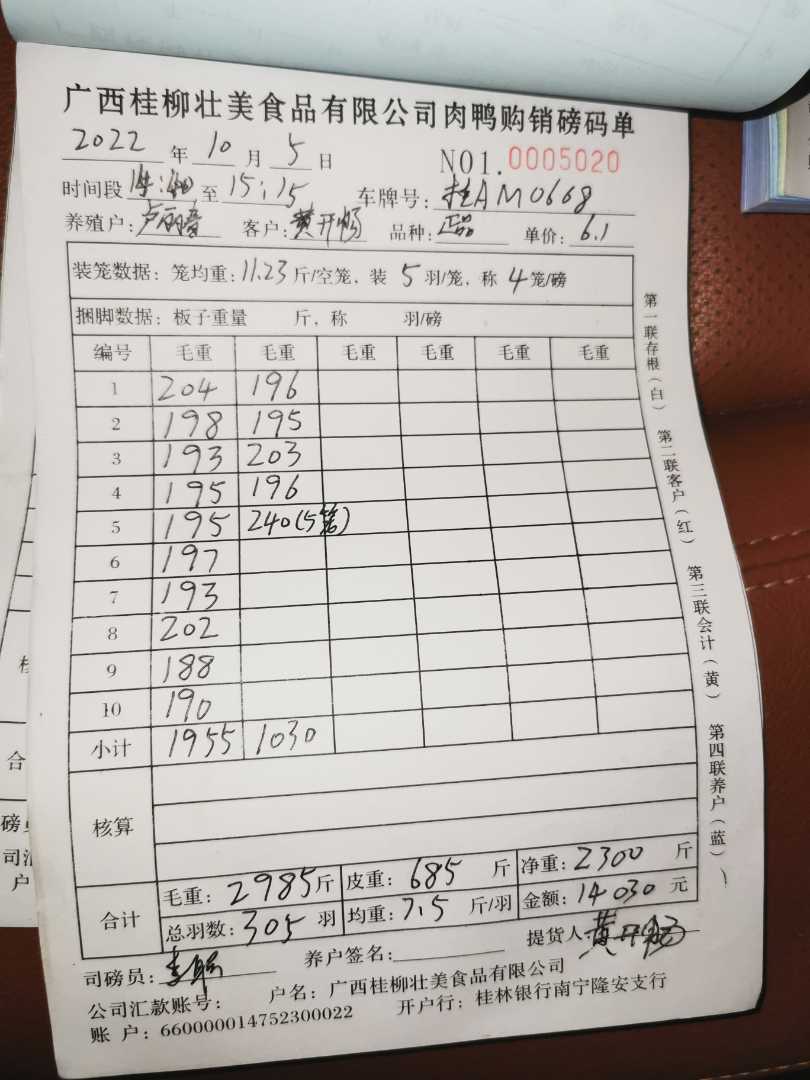 广西桂柳壮美食品有限公司肉鸭购销磅码单
2022 年 10 月 5 日 NO1.0005020
时间段 14:40 至 15:15 车牌号: 桂AM0668
养殖户: 卢丽 客户: 黄开畅 品种: 正品 单价: 6.1
装笼数据: 笼均重: 11.23 斤/空笼, 装 5 羽/笼, 称 4 笼/磅
捆脚数据: 板子重量 斤, 称 羽/磅
编号 毛重 毛重 毛重 毛重 毛重 毛重
1 204 196
2 198 195
3 193 203
4 195 196
5 195 240(5笼)
6 197
7 193
8 202
9 188
10 190
小计 1955 1030
核算
合计
毛重: 2985 斤 皮重: 685 斤 净重: 2300 斤
总羽数: 305 羽 均重: 7.5 斤/羽 金额: 14030 元
司磅员: 养户签名: 提货人 黄开畅
公司汇款账号: 户名: 广西桂柳壮美食品有限公司
账 户: 660000014752300022 开户行: 桂林银行南宁隆安支行
第一联存根(白) 第二联客户(红) 第三联会计(黄) 第四联养户(蓝)
合
磅员
司汇
户